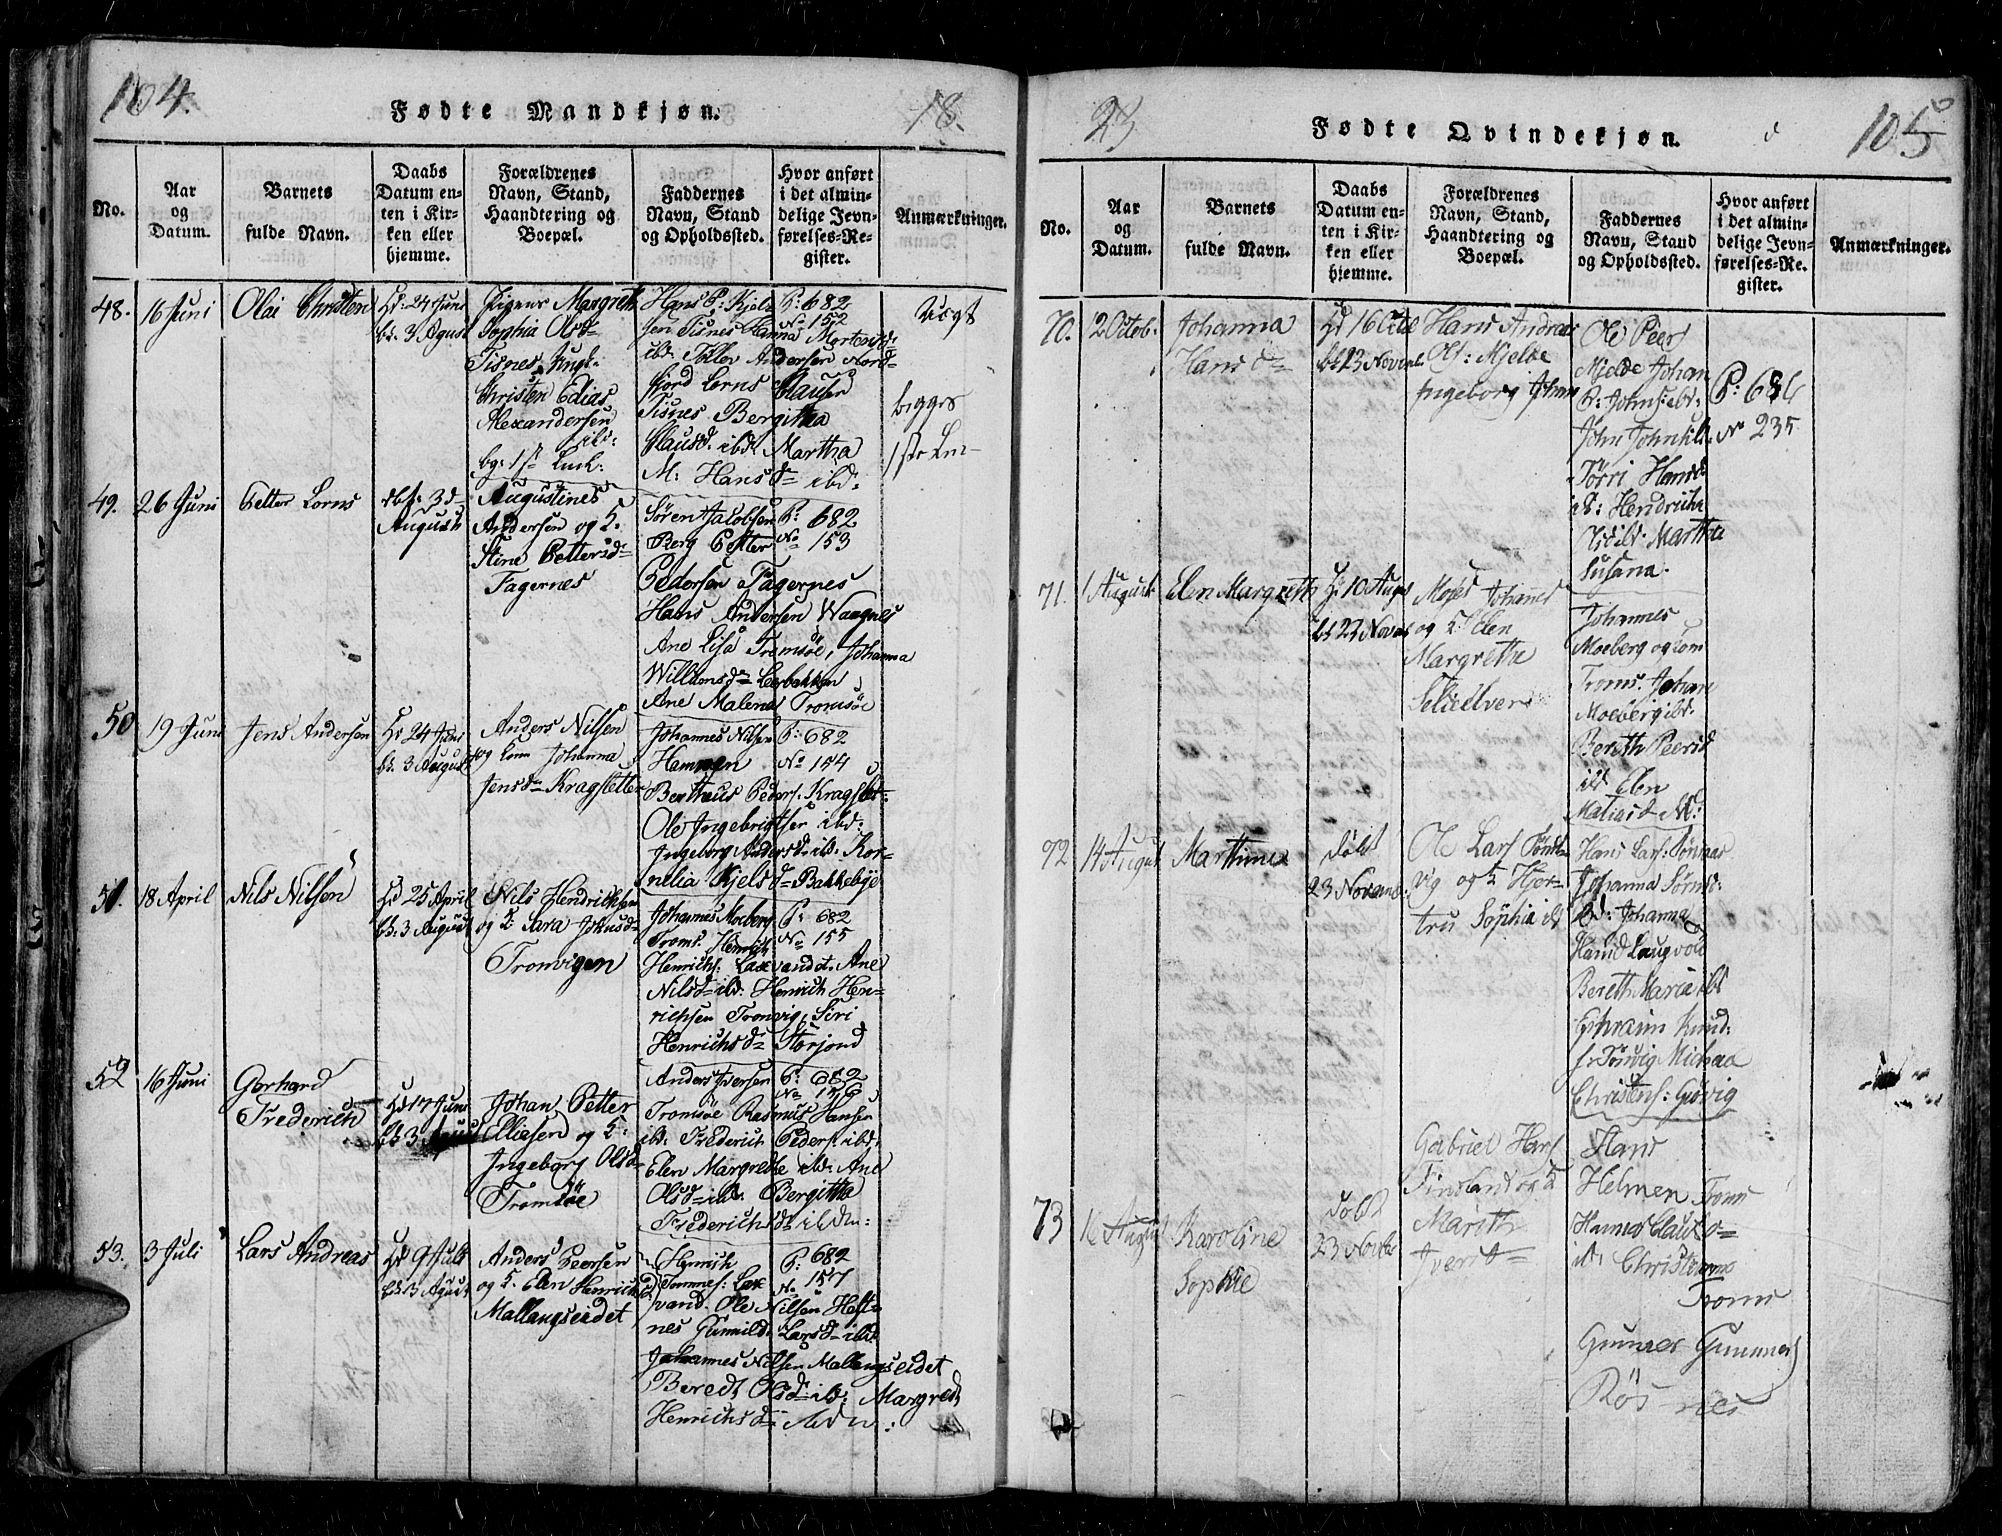 104.
Fødte Mandkjøn.
18.
No.
Aar
og
Datum.
Barnets
fulde Navn.
Daabs
Datum en-
ten i Kir-
ken eller
hjemme.
Forældrenes
Navn, Stand,
Haandtering og
Boepæl.
Faddernes
Navn, Stand
og Opholdssted.
Hvor anført
i det almin-
delige Jevn-
førelses-Re-
gister.
Anmærkninger.
48.
16 Juni
Olai Christen
Hd: 24 Juni
bt. 3 August
Pigens Margreth
Sophia Olsd
Tisnes Ungk.
Christen Edias
Alexandersen
ibd:
Hans P: Kjel
sen Tisnes Hanna Mortensd
ibd: Tollev Andersen Nord-
fjord Lorns Clausen
Tisnes Bergitha
Clausd. ibd Martha
M: Hansd ibd:
P: 682
No 152
Uægt
begges
1ste
49.
26 Juni
Petter Lorns
dbt: 3d
August
Augustines
Andersen og K.
Stine Pettersd
Fagernes
Søren Jacobsen
Berg Petter
Pedersen Fagernes
Hans Andersen Waagnes
Ane Lisa Tromsöe, Johanna
Willumsd Leerbakken
Ane Malena Tromsöe
P: 682
No 153
50
19 Juni
Jens Andersen
Hd 24 Juni
bt. 3 August
Anders Nilsen
og kone Johanna
Jensd Kragsletten
Johannes Nilsen
Hamngen
Bertheus Peders: Kragslet-
Ole Ingebrigtsen ibd:
Ingeborg Andersd. ibd. Kor-
nelia Kjelsd Bakkebye
P: 682
No 154
51.
18 April
Nils Nilsen
Hd 25 April
bt. 3 August
Nils Hendrichsen
og K. Sara Johnsd
Tronvigen
Johannes Moeberg
Troms. Henrich
Henrichs: Laxevandet. Ane
Nilsd ibd: Henrich Hen-
richsen Tronvig, Siri
Henrichsd Storjord
P: 682
No 155
52
16 Juni
Gerhard
Frederich
Hd 17 Juni
bt 3 August
Johan Petter
Eliesen og K:
Ingeborg Olsd
Tromsöe
Anders Iversen
Tromsöe Rasmus Hansen
ibd: Frederich Peders: ibd:
Elen Margrethe ibd: Ane
Olsd ibd. Bergitha
Frederichsd ibdm:
P: 682
No 156
53.
3 Juli
Lars Andreas
Hd 9 Juli
bt 3 August
Anders Peersen
og K. Elen Henrichsd
Mallangseidet
Henrich
Tommes: Lax
vand. Ole Nilsen Heft-
nes Gunnild Larsd ibd
Johannes Nilsen Mallangseidet
Beredt Olsd ibd: Margredt
Henrichsd ibd m:
P: 682
No 157
23
Fødte Qvindekjøn.
105
No.
Aar
og
Datum.
Barnets
fulde Navn.
Daabs
Datum en-
ten i Kir-
ken eller
hjemme.
Forældrenes
Navn, Stand,
Haandtering og
Boepæl.
Faddernes
Navn, Stand
og Opholdssted.
Hvor anført
i det almin-
delige Jevn-
førelses-Re-
gister.
Anmærkninger.
70.
2 Octob.
Johanna
Hansd
Hd 16 Octb
bt 23 Novemb
Hans Andreas
Ols: Mjelde
Ingeborg Johan
Ole Peer
Mjelde Johan
P: Johns: ibd:
John Johnsk
Torri Hansd
ibd: Hendricha
ibd: Martha
Susana.
P: 686
No 235
71.
1 August
Elen Margreth
Hd 10 Aug
bt 23 Novb
Moses Johannes
og K Elen
Margretha
Selielven
Johannes
Moeberg og kone
Troms. Johan
Moeberg ibd.
Bereth Peersd
ibd Elen
Matiasd
72
14 August
Marthine
døbt
23 Novemb:
Ole Lars Tønd-
vig og K Hjer-
tru Sophia ibd
Hans Lars: Tønnes
Johanna Sørnsd:
ibd: Johanna
Hansd Laugvold
Bereth Maria ibd
Ephraim Knud:
Tønvig Michaa
Christens: Gøvig
73
16 August
Karoline
Sophie
døbt
23 Novbr
Gabriel Hans
Finsland og K
Marith
Iversd
Hans
Helmen Troms
Hannes Claus:o-
ib: Christianna
Troms
Gunner Gunners
Røs-nes